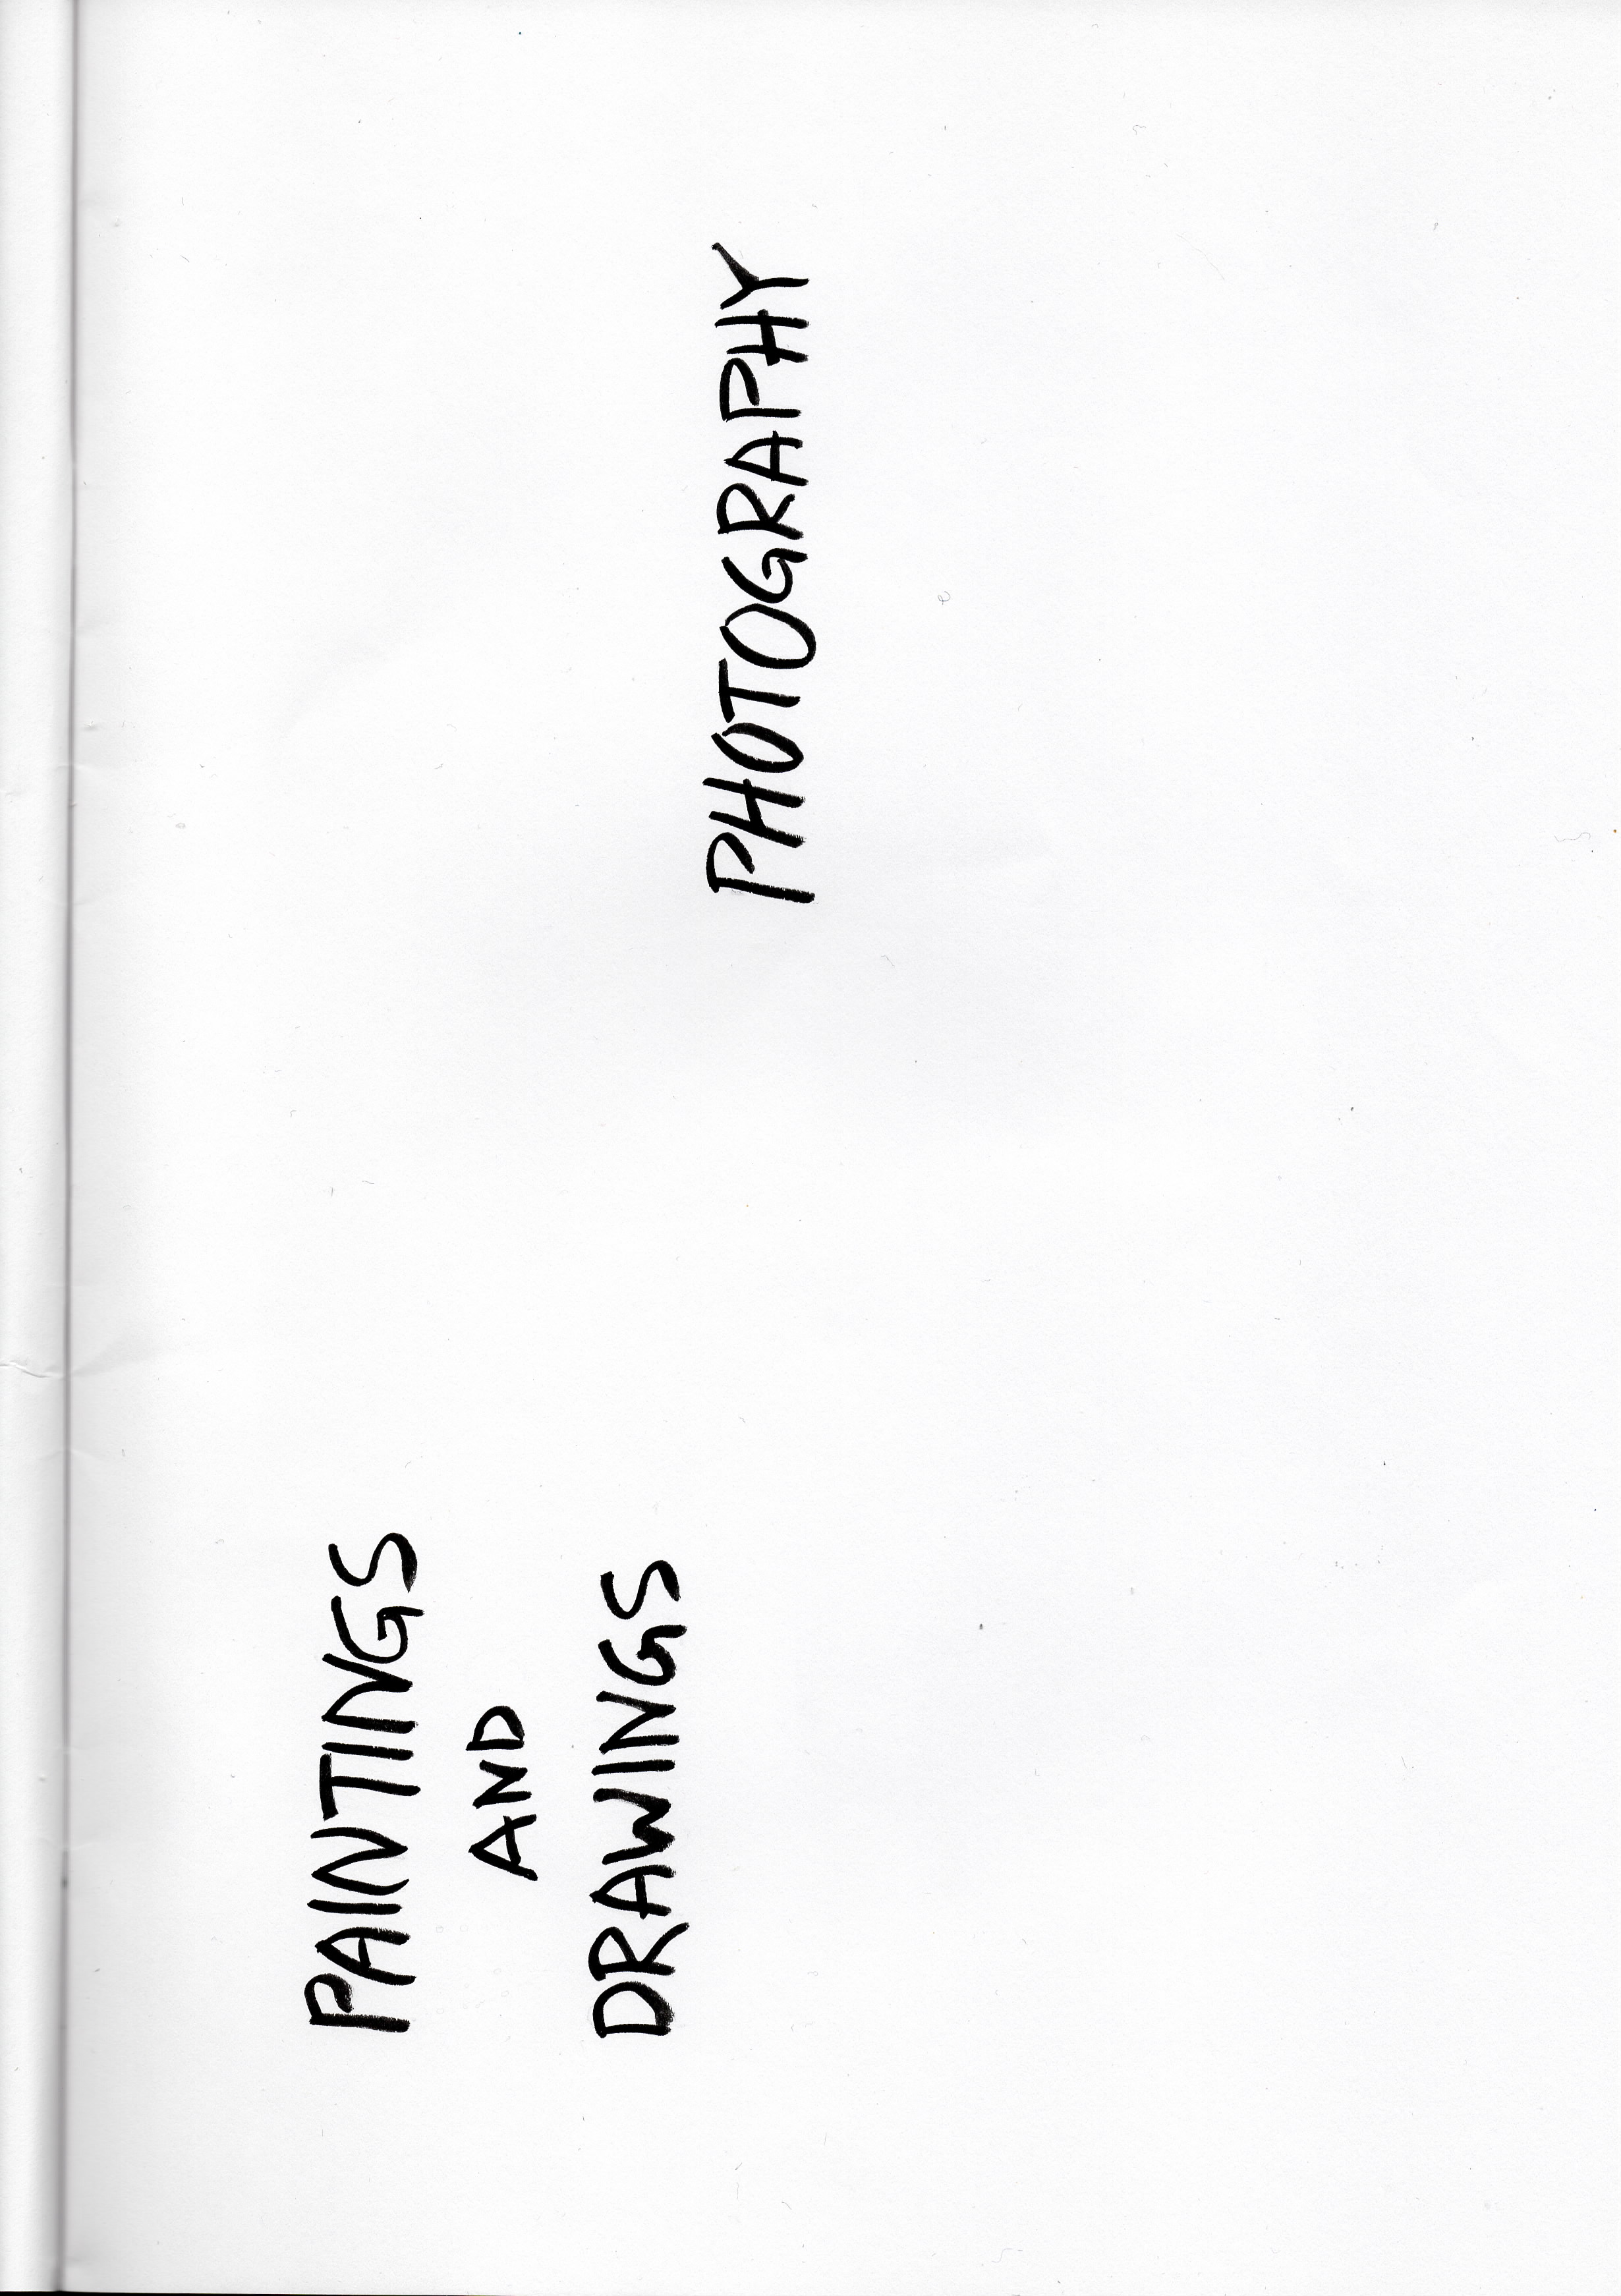 PAINTINGS
AND
DRAWINGS
PHOTOGRAPHY